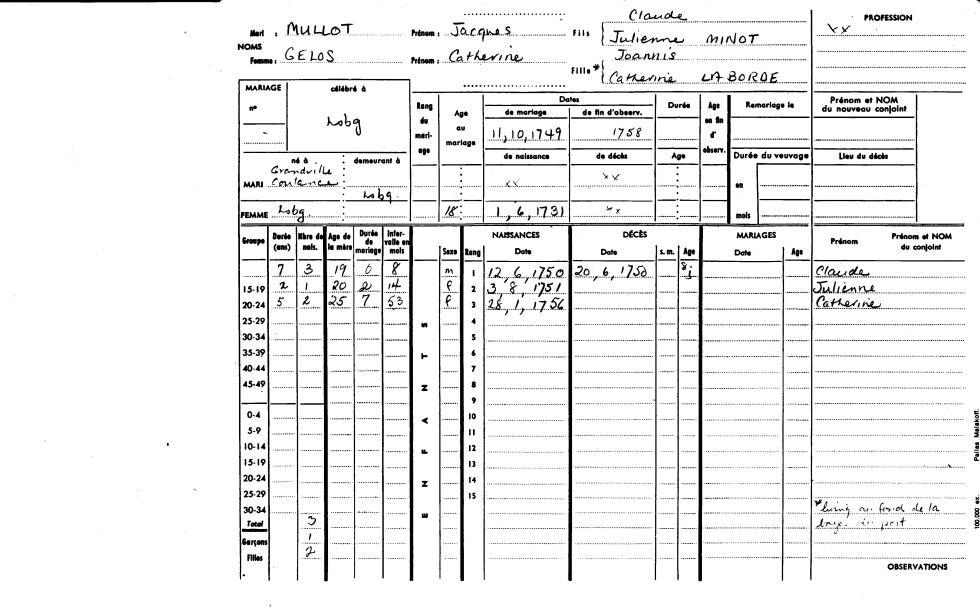 Mari : MULLOT Prénom : Jacques Fils { Claude
Julienne MINOT
NOMS
Femme : GELOS Prénom : Catherine Fille * { Joannis
Catherine LABORDE
PROFESSION
xx
MARIAGE célébré à
n° Lobg
-
Rang du mariage
Age au mariage
Dates
de mariage de fin d'observ.
11, 10, 1749 1758
de naissance de décès
xx xx
1, 6, 1731 xx
Durée
Age
Age en fin d'observ.
Remariage le
Durée du veuvage
en
mois
Prénom et NOM du nouveau conjoint
Lieu du décès
né à demeurant à
MARI Grandville
Coutances Lobg.
FEMME Lobg. 18
Groupe Durée (ans) Nbre de nais. Age de la mère Durée de mariage Intervalle en mois
ENFANTS
Sexe Rang NAISSANCES Date DÉCÈS Date s. m. Age MARIAGES Date Age Prénom Prénom et NOM du conjoint
7 3 19 0 8 m 1 12, 6, 1750 20, 6, 1750 8j Claude
15-19 2 1 20 2 14 f 2 3, 8, 1751 Julienne
20-24 5 2 25 7 53 f 3 28, 1, 1756 Catherine
25-29 4
30-34 5
35-39 6
40-44 7
45-49 8
9
0-4 10
5-9 11
10-14 12
15-19 13
20-24 14
25-29 15
30-34
Total 3
Garçons 1
Filles 2
* living au fond de la
du port
OBSERVATIONS
100.000 ex. Pallas Malakoff.